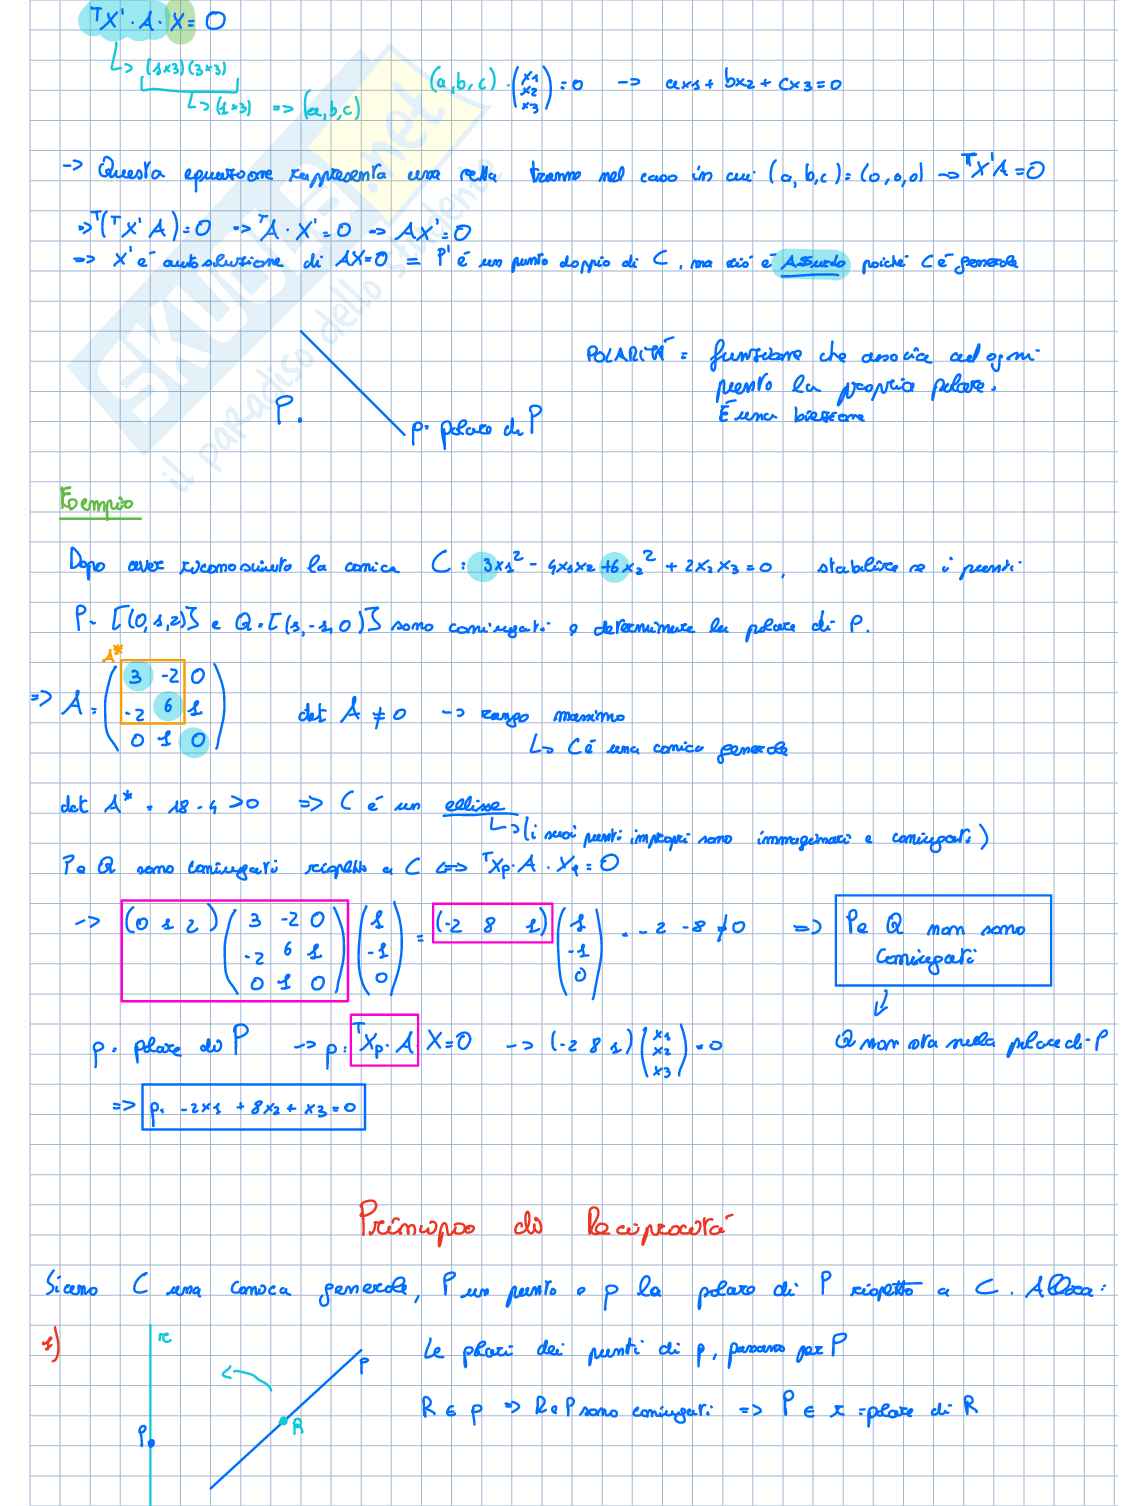 ᵀX'·A·X = 0
↳ (1×3)(3×3)
↳ (1×3) => (a,b,c)
(a,b,c)·(x1 x2 x3) = 0 → ax1 + bx2 + cx3 = 0
-> Questa equazione rappresenta una retta tranne nel caso in cui (a,b,c) = (0,0,0) → ᵀX'A = 0
=> ᵀ(ᵀX'A) = 0 => ᵀA·X' = 0 => AX' = 0
=> X' è autosoluzione di AX=0 = P' è un punto doppio di C, ma ciò è Assurdo poiché C è generale
POLARITÀ = funzione che associa ad ogni
punto la propria polare.
È una biezione
P.
p = polare di P
Esempio
Dopo aver riconosciuto la conica C: 3x1² - 4x1x2 +6x2² + 2x2x3 = 0, stabilire se i punti
P = [(0,1,2)] e Q = [(1,-1,0)] sono coniugati e determinare la polare di P.
A*
=> A = (3 -2 0
-2 6 1
0 1 0)
det A ≠ 0 → rango massimo
↳ C è una conica generale
det A* = 18 - 4 > 0 => C è un ellisse
↳ (i suoi punti impropri sono immaginari e coniugati)
P e Q sono coniugati rispetto a C <=> ᵀXp·A·Xq = 0
-> (0 1 2)(3 -2 0 / -2 6 1 / 0 1 0)(1 -1 0) = (-2 8 1)(1 -1 0) = -2 -8 ≠ 0 => P e Q non sono
coniugati
p = polare di P → p: ᵀXp·A X = 0 → (-2 8 1)(x1 x2 x3) = 0
Q non sta nella polare di P
=> p: -2x1 + 8x2 + x3 = 0
Principio di Reciprocità
Siano C una conica generale, P un punto e p la polare di P rispetto a C. Allora:
1)
r
P
p
R
Le polari dei punti di p, passano per P
R ∈ p => R e P sono coniugati => P ∈ r = polare di R
SKUOLA.net
il paradiso dello studente